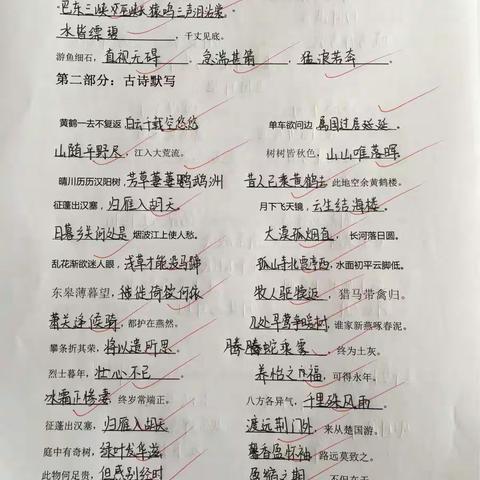 巴东三峡巫峡长猿鸣三声泪沾裳。
水皆缥碧,千丈见底。
游鱼细石,直视无碍。急湍甚箭,猛浪若奔。
第二部分:古诗默写
黄鹤一去不复返,白云千载空悠悠 单车欲问边,属国过居延延。
山随平野尽,江入大荒流。 树树皆秋色,山山唯落晖。
晴川历历汉阳树,芳草萋萋鹦鹉洲 昔人已乘黄鹤去 此地空余黄鹤楼。
征蓬出汉塞,归雁入胡天。 月下飞天镜,云生结海楼。
日暮乡关何处是 烟波江上使人愁。 大漠孤烟直,长河落日圆。
乱花渐欲迷人眼,浅草才能没马蹄 孤山寺北贾亭西,水面初平云脚低。
东皋薄暮望,徙倚何依 牧人驱犊返,猎马带禽归。
萧关逢候骑,都护在燕然。 几处早莺争暖树,谁家新燕啄春泥。
攀条折其荣,将以遗所思。 腾蛇乘雾,终为土灰。
烈士暮年,壮心不已。 养怡之福,可得永年。
冰霜正惨凄 终岁常端正。 八方各异气,千里殊风雨。
征蓬出汉塞,归雁入胡天 渡远荆门外,来从楚国游。
庭中有奇树,绿叶发华滋 馨香盈怀袖,路远莫致之。
此物何足贵,但感别经时 盈缩之期,不但在天